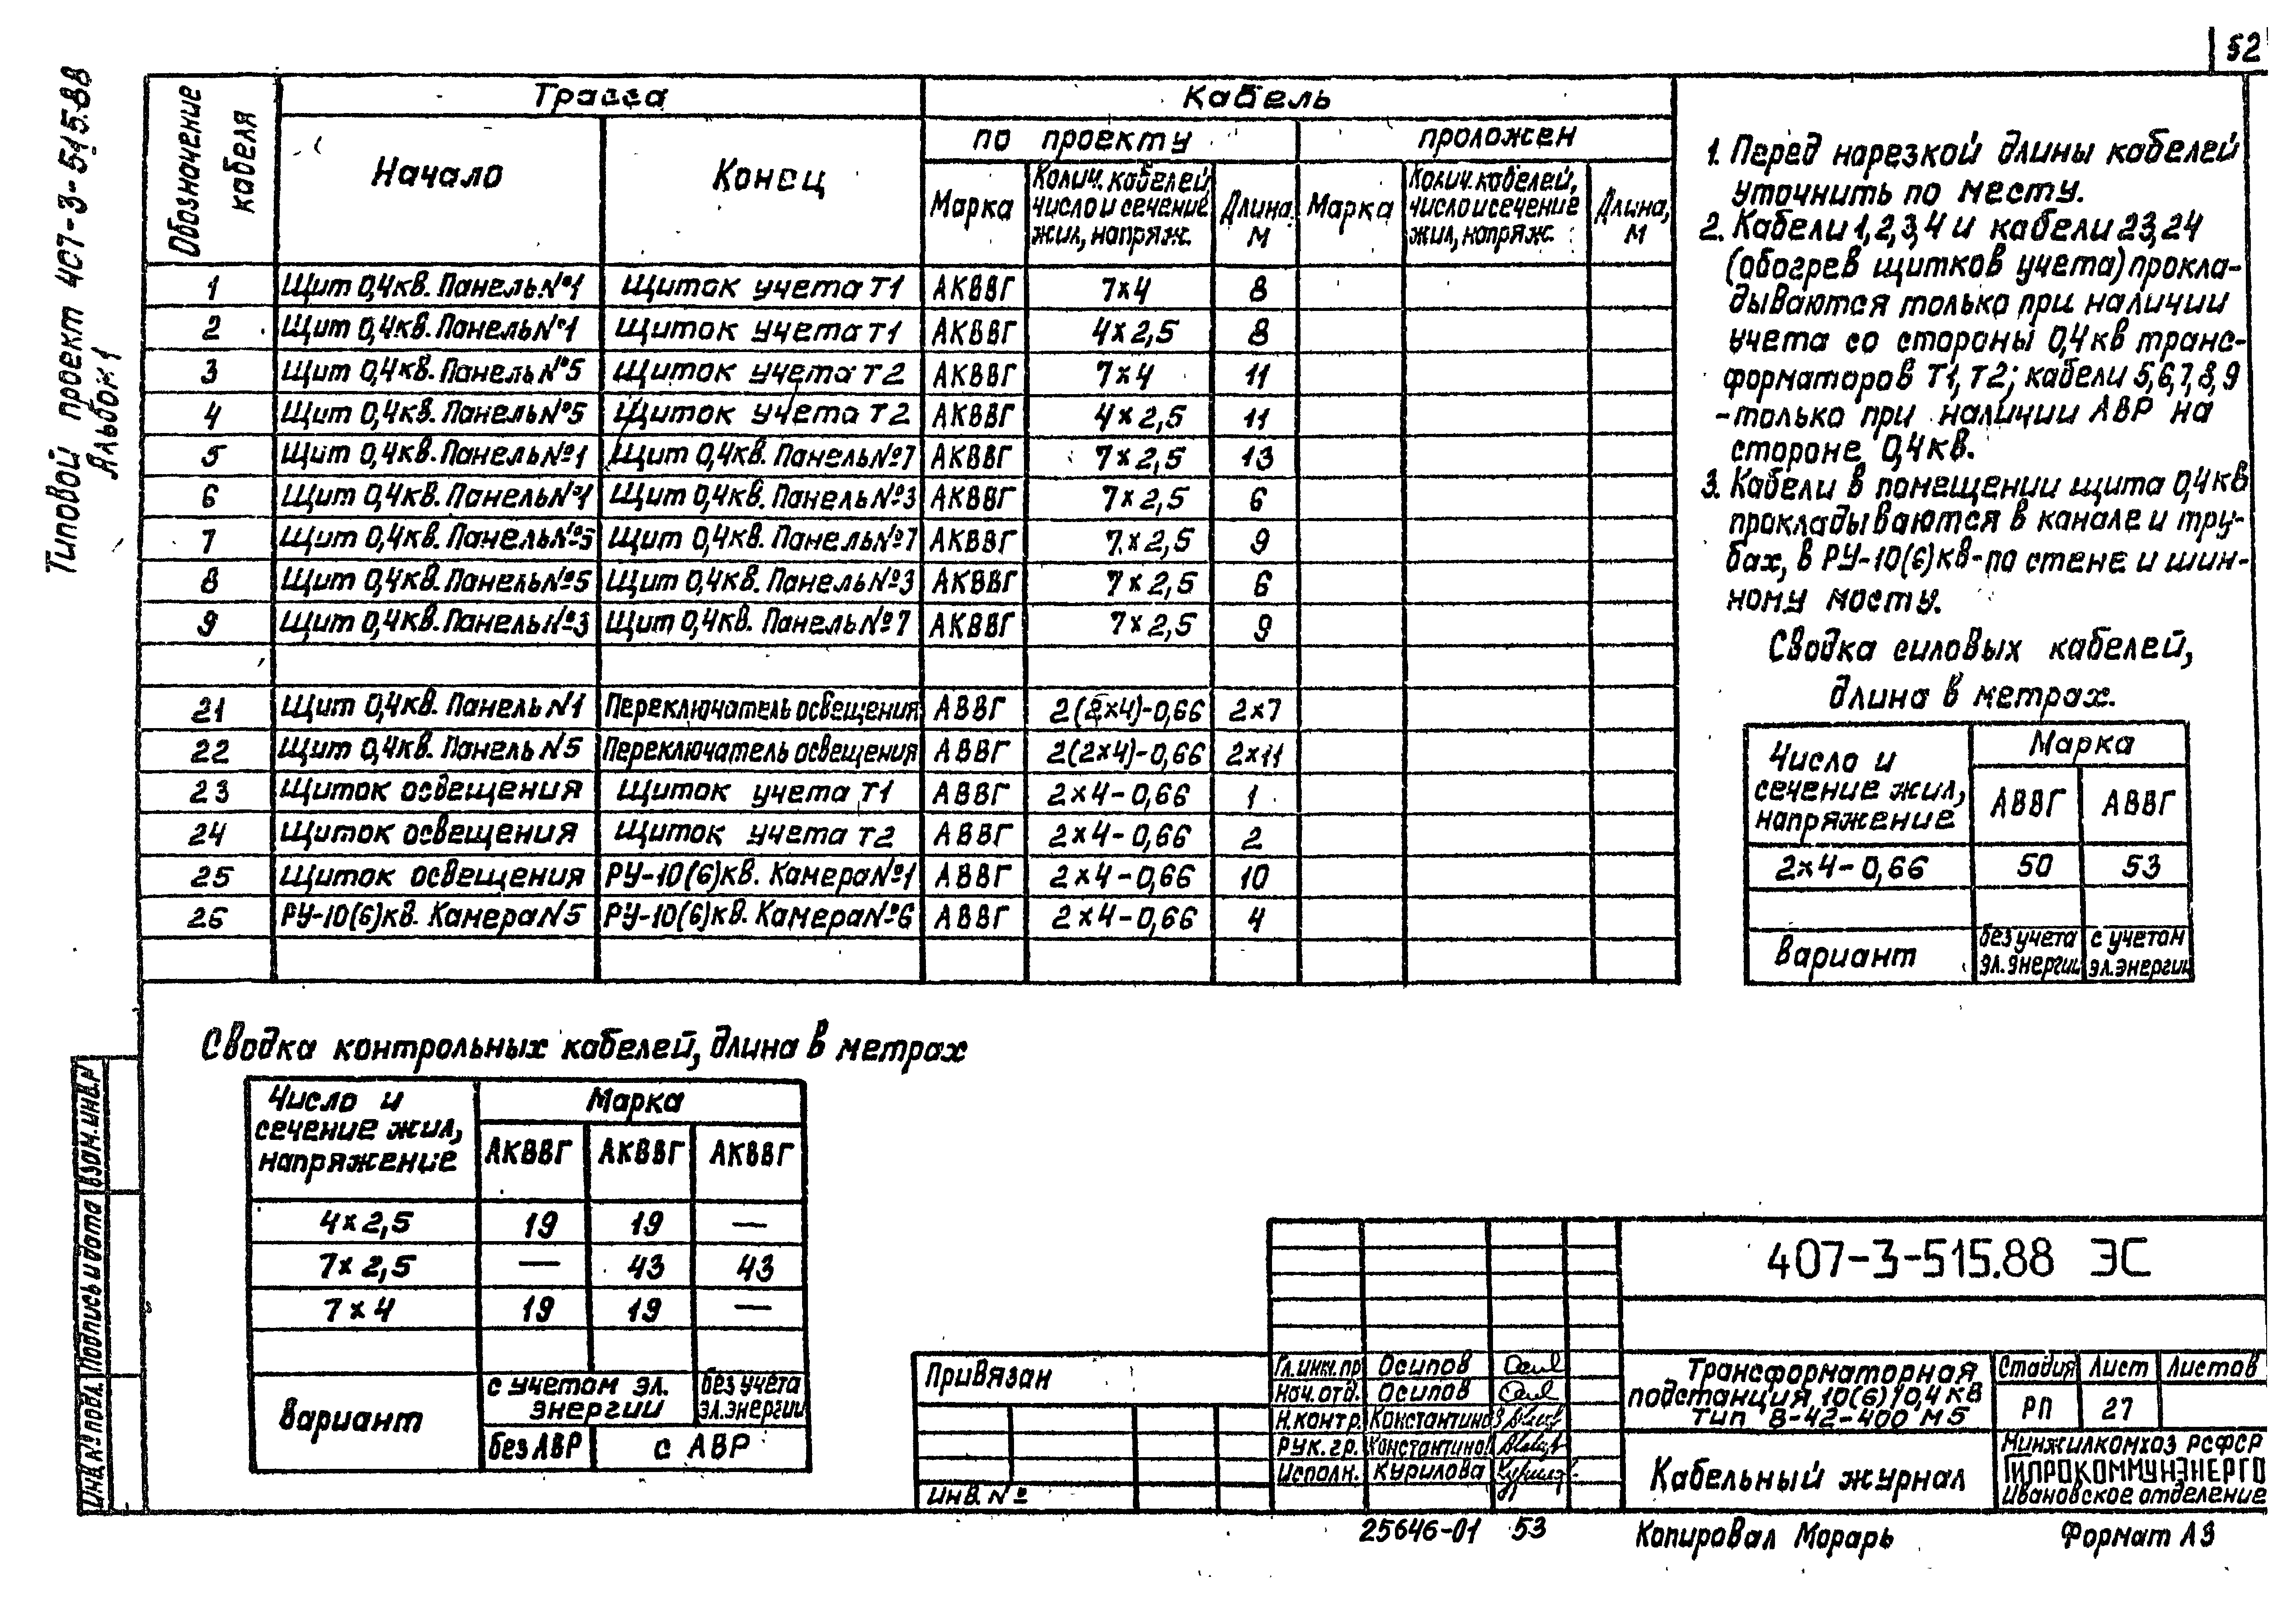 52
Типовой проект 407-3-515.88
Альбом 1
Обозначение кабеля
Трасса
Кабель
Начало
Конец
по проекту
проложен
Марка
Колич. кабелей, число и сечение жил, напряж.
Длина, м
Марка
Колич. кабелей, число и сечение жил, напряж.
Длина, м
1 Щит 0,4кв. Панель №1 Щиток учета Т1 АКВВГ 7×4 8
2 Щит 0,4кв. Панель №1 Щиток учета Т1 АКВВГ 4×2,5 8
3 Щит 0,4кв. Панель №5 Щиток учета Т2 АКВВГ 7×4 11
4 Щит 0,4кв. Панель №5 Щиток учета Т2 АКВВГ 4×2,5 11
5 Щит 0,4кв. Панель №1 Щит 0,4кв. Панель №7 АКВВГ 7×2,5 13
6 Щит 0,4кв. Панель №1 Щит 0,4кв. Панель №3 АКВВГ 7×2,5 6
7 Щит 0,4кв. Панель №5 Щит 0,4кв. Панель №7 АКВВГ 7×2,5 9
8 Щит 0,4кв. Панель №5 Щит 0,4кв. Панель №3 АКВВГ 7×2,5 6
9 Щит 0,4кв. Панель №3 Щит 0,4кв. Панель №7 АКВВГ 7×2,5 9
21 Щит 0,4кв. Панель N1 Переключатель освещения АВВГ 2(2×4)-0,66 2×7
22 Щит 0,4кв. Панель N5 Переключатель освещения АВВГ 2(2×4)-0,66 2×11
23 Щиток освещения Щиток учета Т1 АВВГ 2×4-0,66 1
24 Щиток освещения Щиток учета Т2 АВВГ 2×4-0,66 2
25 Щиток освещения РУ-10(6)кв. Камера №1 АВВГ 2×4-0,66 10
26 РУ-10(6)кв. Камера N5 РУ-10(6)кв. Камера №6 АВВГ 2×4-0,66 4
1. Перед нарезкой длины кабелей
уточнить по месту.
2. Кабели 1,2,3,4 и кабели 23,24
(обогрев щитков учета) прокла-
дываются только при наличии
учета со стороны 0,4кв транс-
форматоров Т1, Т2; кабели 5,6,7,8,9
-только при наличии АВР на
стороне 0,4кв.
3. Кабели в помещении щита 0,4кв
прокладываются в канале и тру-
бах, в РУ-10(6)кв-по стене и шин-
ному мосту.
Сводка силовых кабелей,
длина в метрах.
Число и сечение жил, напряжение
Марка
АВВГ АВВГ
2×4-0,66 50 53
Вариант
без учета эл.энергии
с учетом эл.энергии
Сводка контрольных кабелей, длина в метрах
Число и сечение жил, напряжение
Марка
АКВВГ АКВВГ АКВВГ
4×2,5 19 19 —
7×2,5 — 43 43
7×4 19 19 —
Вариант
с учетом эл. энергии
без учета эл.энергии
без АВР
с АВР
Инв.№ подл.
Подпись и дата
Взам.инв.N
Привязан
Инв. №
Гл.инж.пр Осипов
Нач.отд. Осипов
Н.контр. Константинов
Рук.гр. Константинов
Исполн. Курилова
407-3-515.88 ЭС
Трансформаторная
подстанция 10(6)/0,4 кв
тип В-42-400 М5
Стадия Лист Листов
РП 27
Кабельный журнал
Минжилкомхоз РСФСР
ГИПРОКОММУНЭНЕРГО
Ивановское отделение
25646-01 53
Копировал Морарь
Формат А3